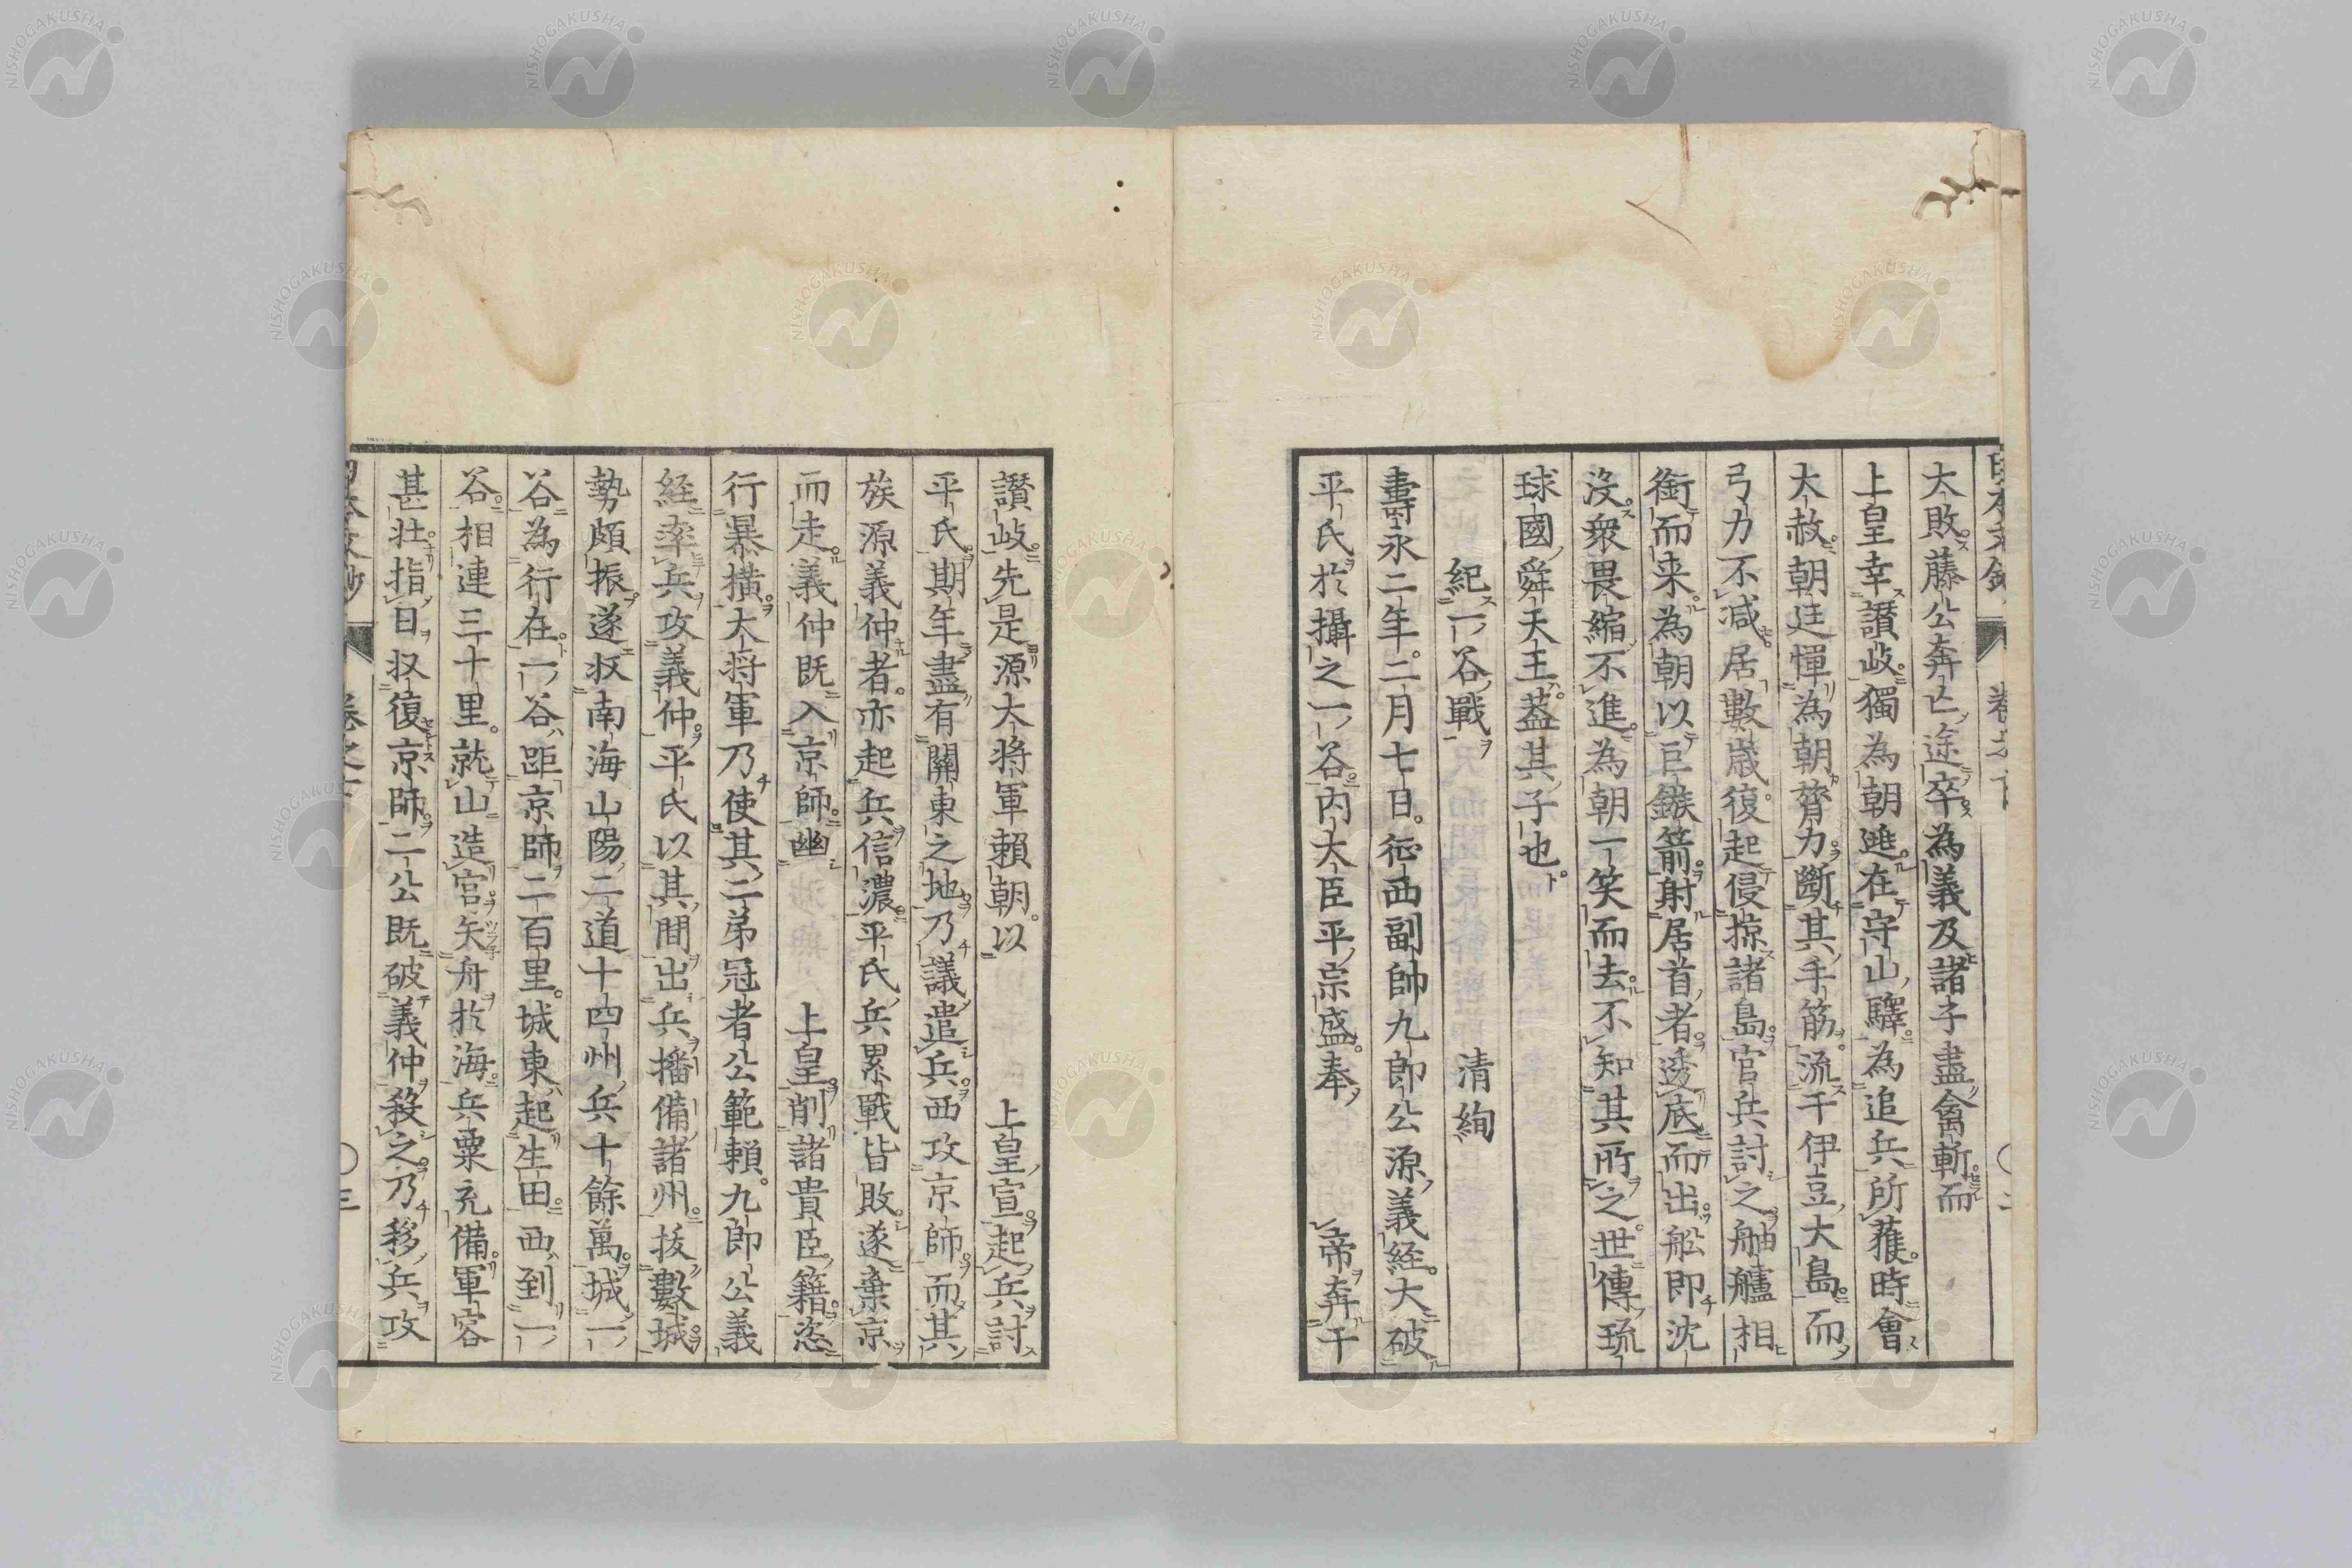 大敗藤公奔亡途卒為義及諸子盡禽斬而
上皇幸讃岐獨為朝遁在守山驛為追兵所獲時會
大赦朝廷憚為朝膂力斷其手筋流于伊豆大島而
弓力不減居數歳復起侵掠諸島官兵討之舳艫相
銜而来為朝以巨鏃箭射居首者透底而出舩即沈
沒衆畏縮不進為朝一笑而去不知其所之世傳琉
球國舜天王葢其子也
紀一谷戰 清絢
壽永二年二月七日征西副帥九郎公源義経大破
平氏於攝之一谷内大臣平宗盛奉 帝奔于
讃岐先是源大将軍頼朝以 上皇宣起兵討
平氏期年盡有關東之地乃議遣兵西攻京師而其
族源義仲者亦起兵信濃平氏兵累戰皆敗遂棄京
而走義仲既入京師幽 上皇削諸貴臣籍恣
行暴横大将軍乃使其二弟冠者公範頼九郎公義
経率兵攻義仲平氏以其間出兵播備諸州抜數城
勢頗振遂収南海山陽二道十四州兵十餘萬城一
谷為行在一谷距京師二百里城東起生田西到一
谷相連三十里就山造宮矢舟於海兵粟充備軍容
甚壮指日収復京師二公既破義仲殺之乃移兵攻